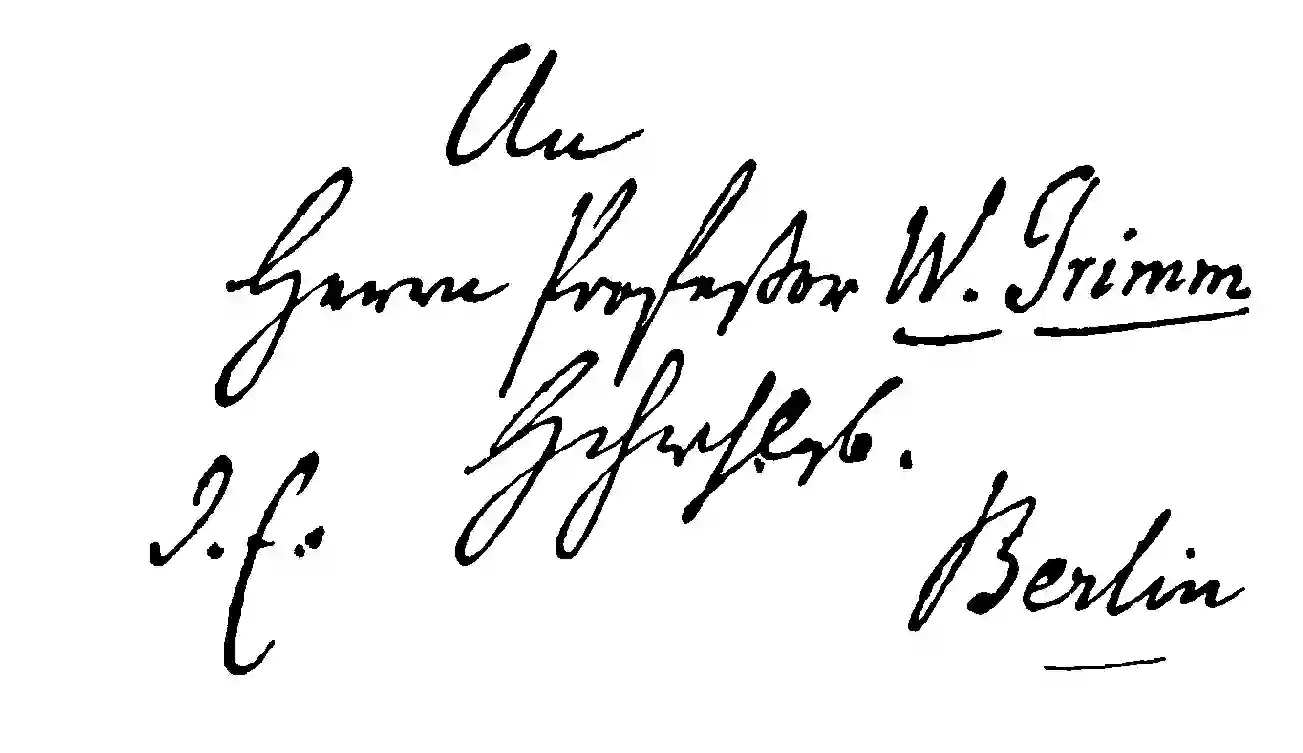 An
Herrn Professor W. Grimm
J. E.
Berlin